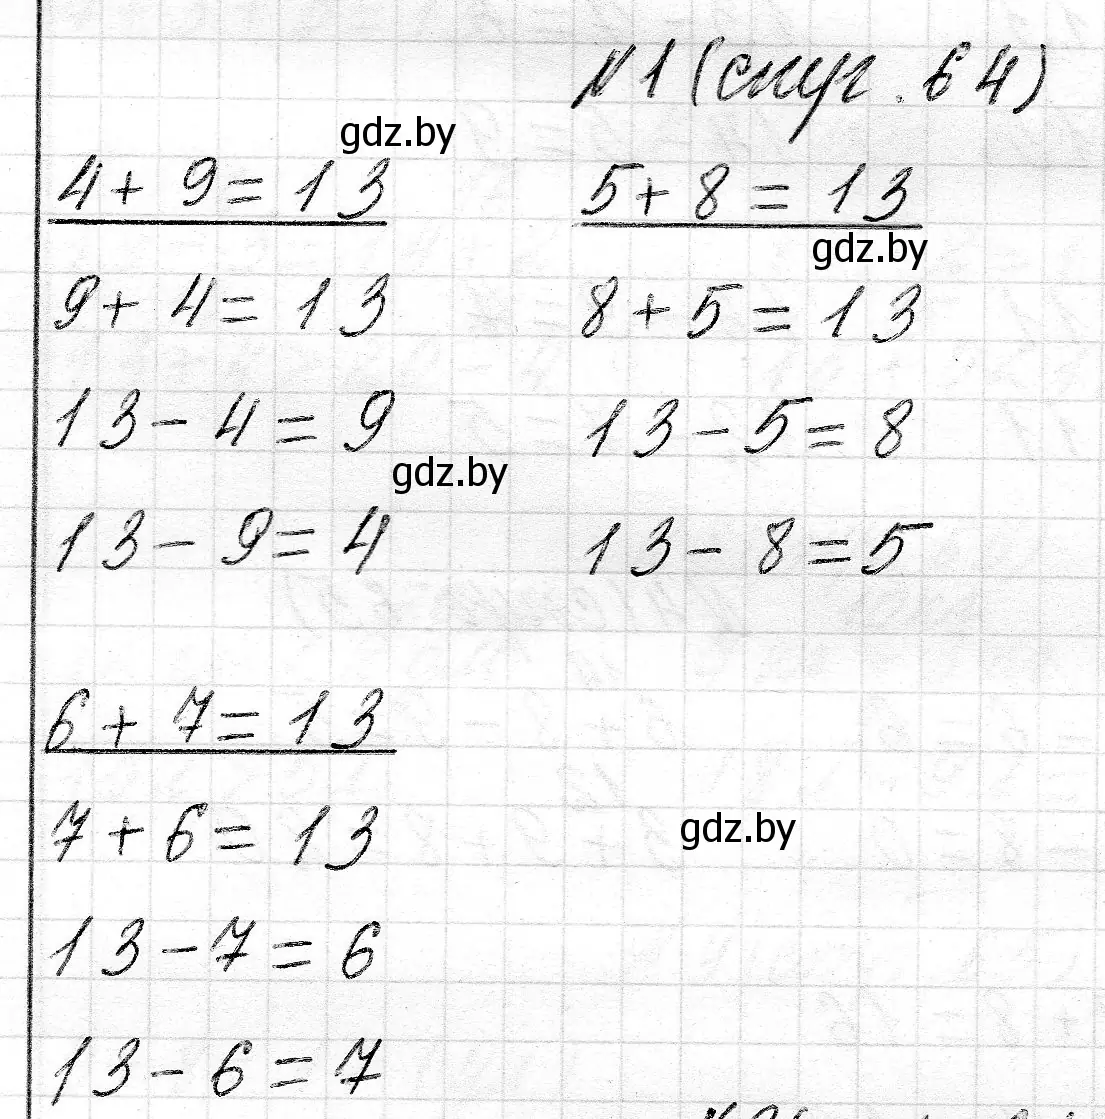 №1 (снуг. 64)
gdz.by
4 + 9 = 13
5 + 8 = 13
gdz.by
9 + 4 = 13
8 + 5 = 13
13 - 4 = 9
13 - 5 = 8
gdz.by
13 - 9 = 4
13 - 8 = 5
6 + 7 = 13
7 + 6 = 13
gdz.by
13 - 7 = 6
13 - 6 = 7